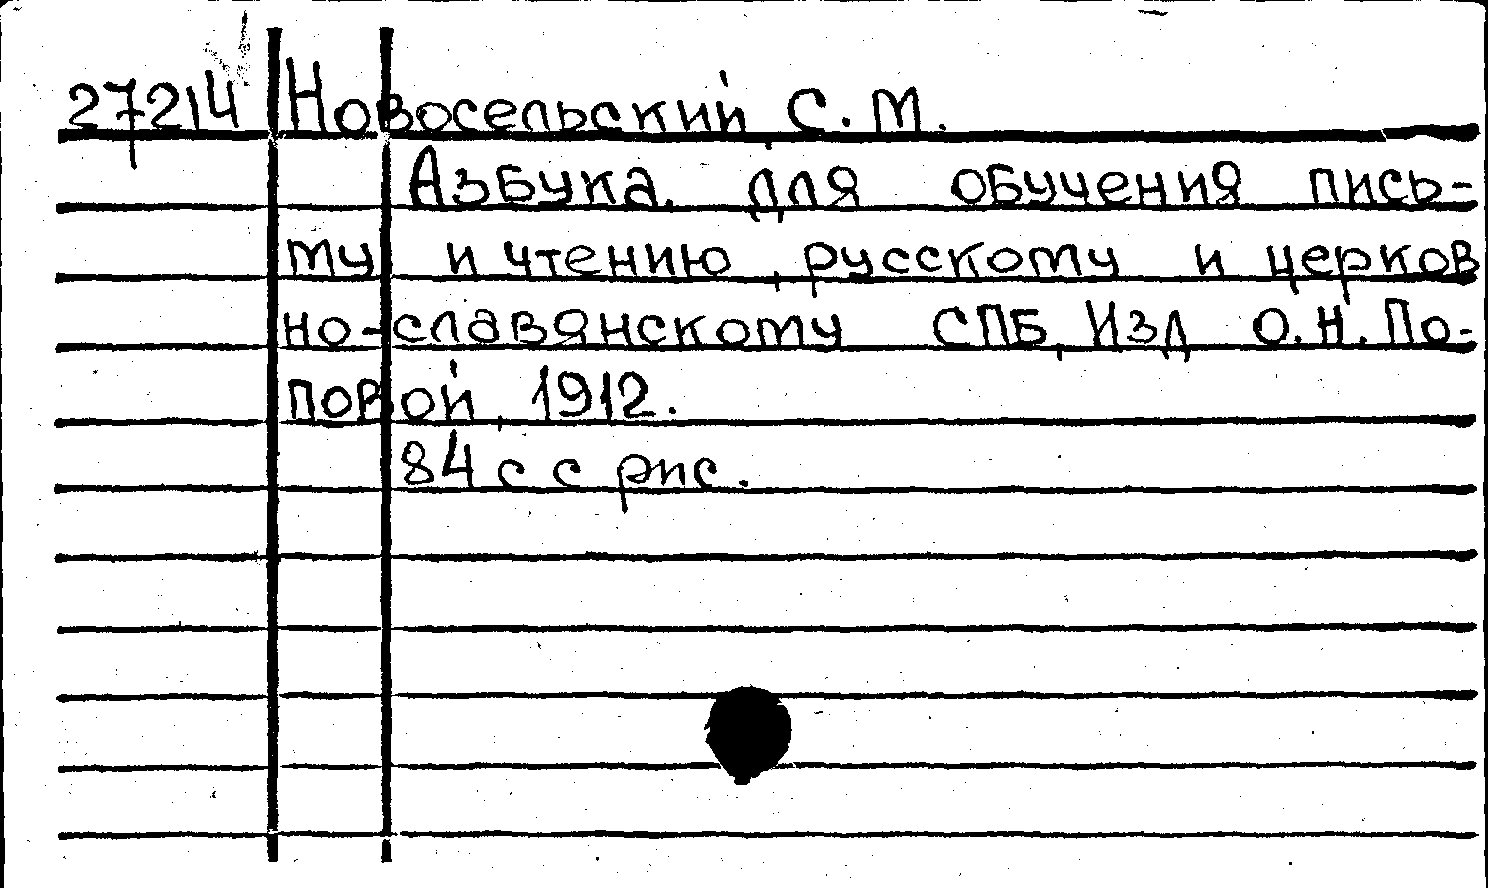 27214 Новосельский С. М.
Азбука. для обучения пись-
му и чтению, русскому и церков
но-славянскому СПБ, Изд О. Н. По-
повой, 1912.
84 с с рис.